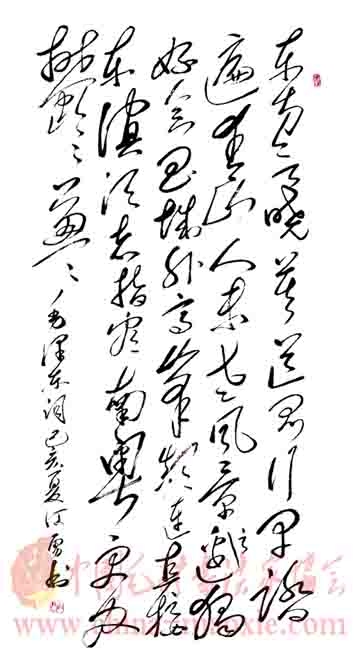 东方欲晓莫道君行早踏
遍青山人未老风景这边独
好会昌城外高峰颠连直接
东溟战士指看南粤更加
郁々葱々
毛泽东词己亥夏勇书